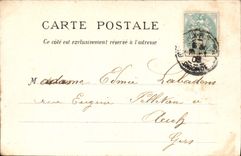 CARTE POSTALE
Ce côté est exclusivement réservé à l'adresse
Madame Edmée Labadens
rue Eugène Pelletan
Auch
Gers